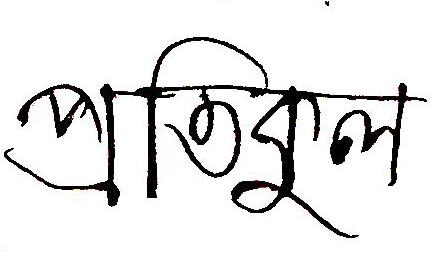 প্রতিকূল